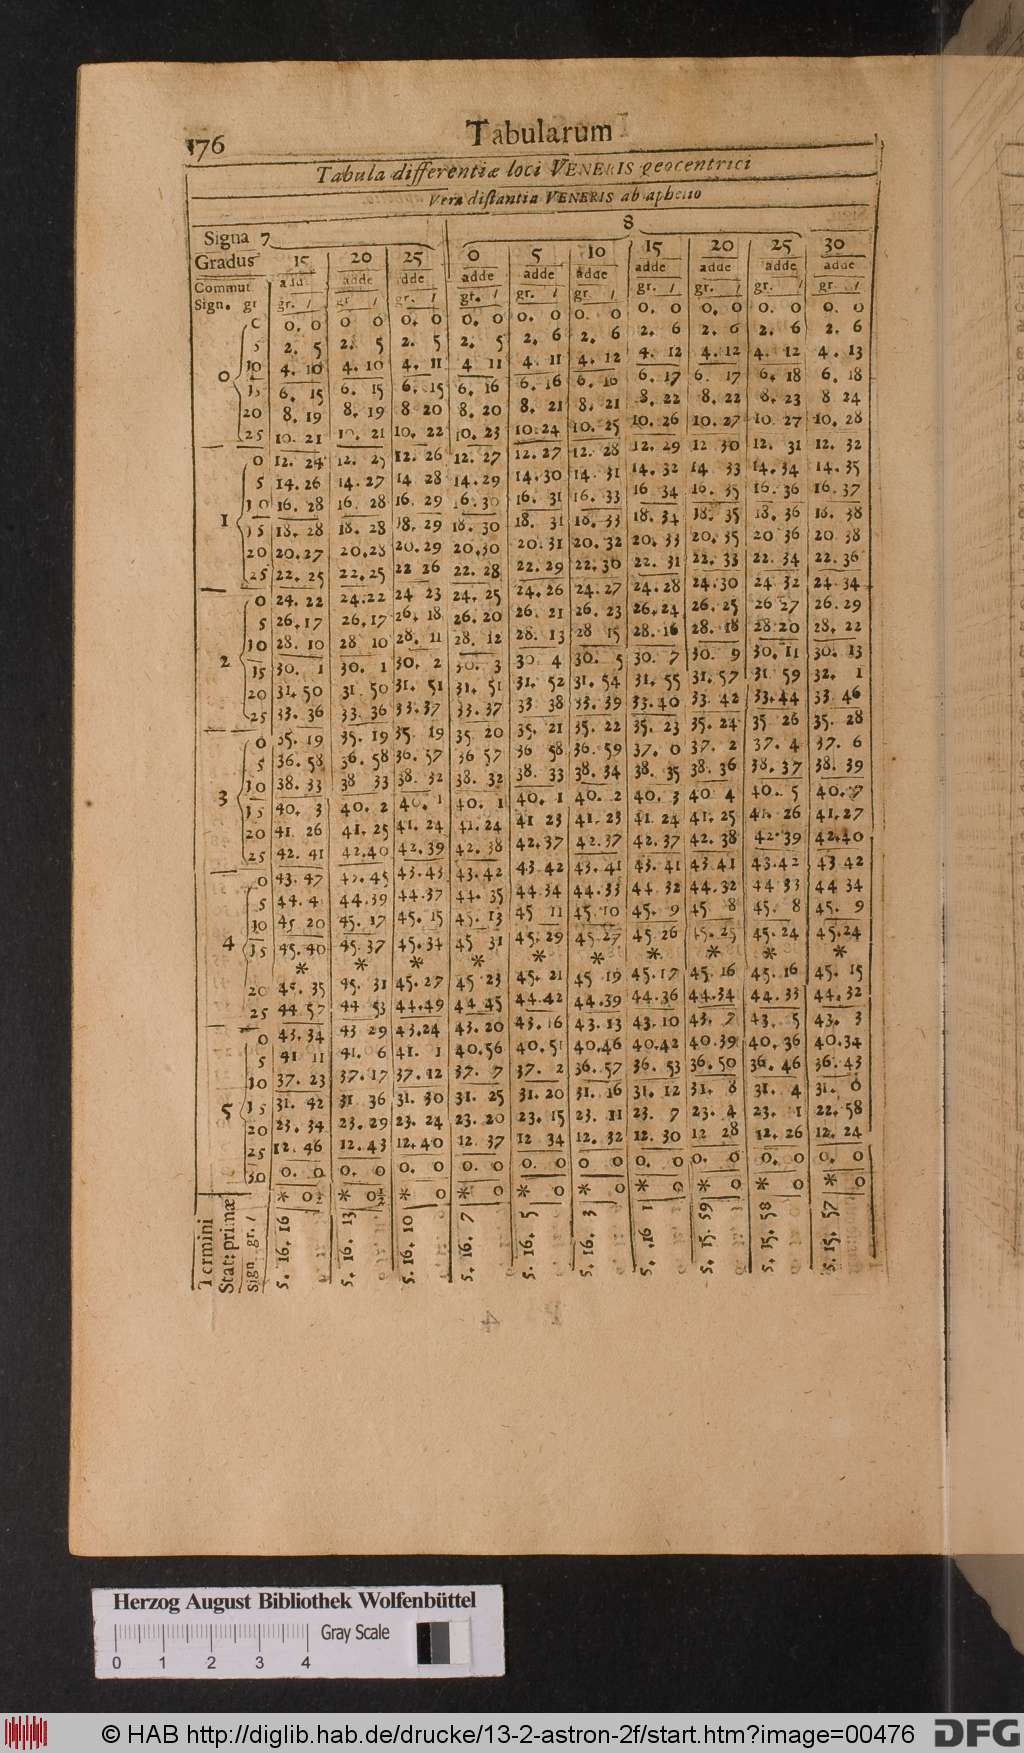 176 Tabularum
Tabula differentiæ loci VENERIS geocentrici
Vera distantia VENERIS ab aphelio
Signa 7 8
Gradus 15 20 25 0 5 10 15 20 25 30
Commut. adde adde adde adde adde adde adde adde adde
Sign. gr gr. / gr / gr. / gr. / gr. / gr / gr. / gr. / gr. / gr. /
0 0. 0 0 0 0. 0 0. 0 0. 0 0. 0 0. 0 0. 0 0. 0 0. 0
5 2. 5 2. 5 2. 5 2. 5 2. 6 2. 6 2. 6 2. 6 2. 6 2. 6
0 10 4. 10 4. 10 4. 11 4 11 4. 11 4. 12 4. 12 4. 12 4. 12 4. 13
15 6. 15 6. 15 6. 15 6. 16 6. 16 6. 16 6. 17 6. 17 6. 18 6. 18
20 8. 19 8. 19 8 20 8. 20 8. 21 8. 21 8. 22 8. 22 8. 23 8 24
25 10. 21 10. 21 10. 22 10. 23 10. 24 10. 25 10. 26 10. 27 10. 27 10. 28
0 12. 24 12. 25 12. 26 12. 27 12. 27 12. 28 12. 29 12 30 12. 31 12. 32
5 14. 26 14. 27 14 28 14. 29 14. 30 14. 31 14. 32 14. 33 14. 34 14. 35
1 10 16. 28 16. 28 16. 29 16. 30 16. 31 16. 33 16 34 16. 35 16. 36 16. 37
15 18. 28 18. 28 18. 29 18. 30 18. 31 18. 33 18. 34 18. 35 18. 36 18. 38
20 20. 27 20. 28 20. 29 20. 30 20. 31 20. 32 20. 33 20. 35 20 36 20 38
25 22. 25 22. 25 22 26 22. 28 22. 29 22. 30 22. 31 22. 33 22. 34 22. 36
0 24. 22 24. 22 24 23 24. 25 24. 26 24. 27 24. 28 24. 30 24 32 24. 34
5 26. 17 26. 17 26. 18 26. 20 26. 21 26. 23 26. 24 26. 25 26 27 26. 29
2 10 28. 10 28 10 28. 11 28. 12 28. 13 28 15 28. 16 28. 18 28 20 28. 22
15 30. 1 30. 1 30. 2 30. 3 30. 4 30. 5 30. 7 30. 9 30. 11 30. 13
20 31. 50 31 50 31. 51 31. 51 31. 52 31. 54 31. 55 31. 57 31 59 32. 1
25 33. 36 33. 36 33. 37 33. 37 33 38 33. 39 33. 40 33. 42 33. 44 33 46
0 35. 19 35. 19 35. 19 35 20 35. 21 35. 22 35. 23 35. 24 35 26 35. 28
5 36. 58 36. 58 36. 57 36 57 36 58 36. 59 37. 0 37. 2 37. 4 37. 6
3 10 38. 33 38 33 38. 32 38. 32 38. 33 38. 34 38. 35 38. 36 38. 37 38. 39
15 40. 3 40. 2 40. 1 40. 1 40. 1 40. 2 40. 3 40 4 40. 5 40. 7
20 41 26 41. 25 41. 24 41. 24 41 23 41. 23 41. 24 41. 25 41. 26 41. 27
25 42. 41 42. 40 42. 39 42. 38 42. 37 42. 37 42. 37 42. 38 42. 39 42. 40
0 43. 47 43. 45 43. 43 43. 42 43 42 43. 41 43. 41 43 41 43. 42 43 42
5 44. 4 44. 39 44. 37 44. 35 44. 34 44. 33 44. 32 44. 32 44 33 44 34
10 45 20 45. 17 45. 15 45. 13 45 11 45. 10 45. 9 45 8 45. 8 45. 9
4 15 45. 40 45. 37 45. 34 45 31 45. 29 45 27 45 26 45. 25 45. 24 45. 24
* * * * * * * * * *
20 45. 35 45. 31 45. 27 45 23 45. 21 45 19 45. 17 45. 16 45. 16 45. 15
25 44. 57 44 53 44. 49 44 45 44. 42 44. 39 44. 36 44. 34 44. 33 44. 32
0 43. 34 43 29 43. 24 43. 20 43. 16 43. 13 43. 10 43. 7 43. 5 43. 3
5 41 11 41. 6 41. 1 40. 56 40. 51 40. 46 40. 42 40. 39 40. 36 40. 34
10 37. 23 37. 17 37. 12 37. 7 37. 2 36. 57 36. 53 36. 50 36. 46 36. 43
5 15 31. 42 31 36 31. 30 31. 25 31. 20 31. 16 31. 12 31. 8 31. 4 31. 0
20 23. 34 23. 29 23. 24 23. 20 23. 15 23. 11 23. 7 23. 4 23. 1 22. 58
25 12. 46 12. 43 12. 40 12. 37 12 34 12. 32 12. 30 12 28 12. 26 12. 24
30 0. 0 0. 0 0. 0 0. 0 0. 0 0 0 0. 0 0. 0 0. 0 0. 0
* 0½ * 0½ * 0 * 0 * 0 * 0 * 0 * 0 * 0 * 0
Termini
Stat: primæ
Sign gr. /
5. 16. 16
5. 16. 13
5. 16. 10
5. 16. 7
5. 16. 5
5. 16. 3
5. 16 1
5. 15. 59
5. 15. 58
5. 15. 57
Herzog August Bibliothek Wolfenbüttel
Gray Scale
0 1 2 3 4
© HAB http://diglib.hab.de/drucke/13-2-astron-2f/start.htm?image=00476 DFG